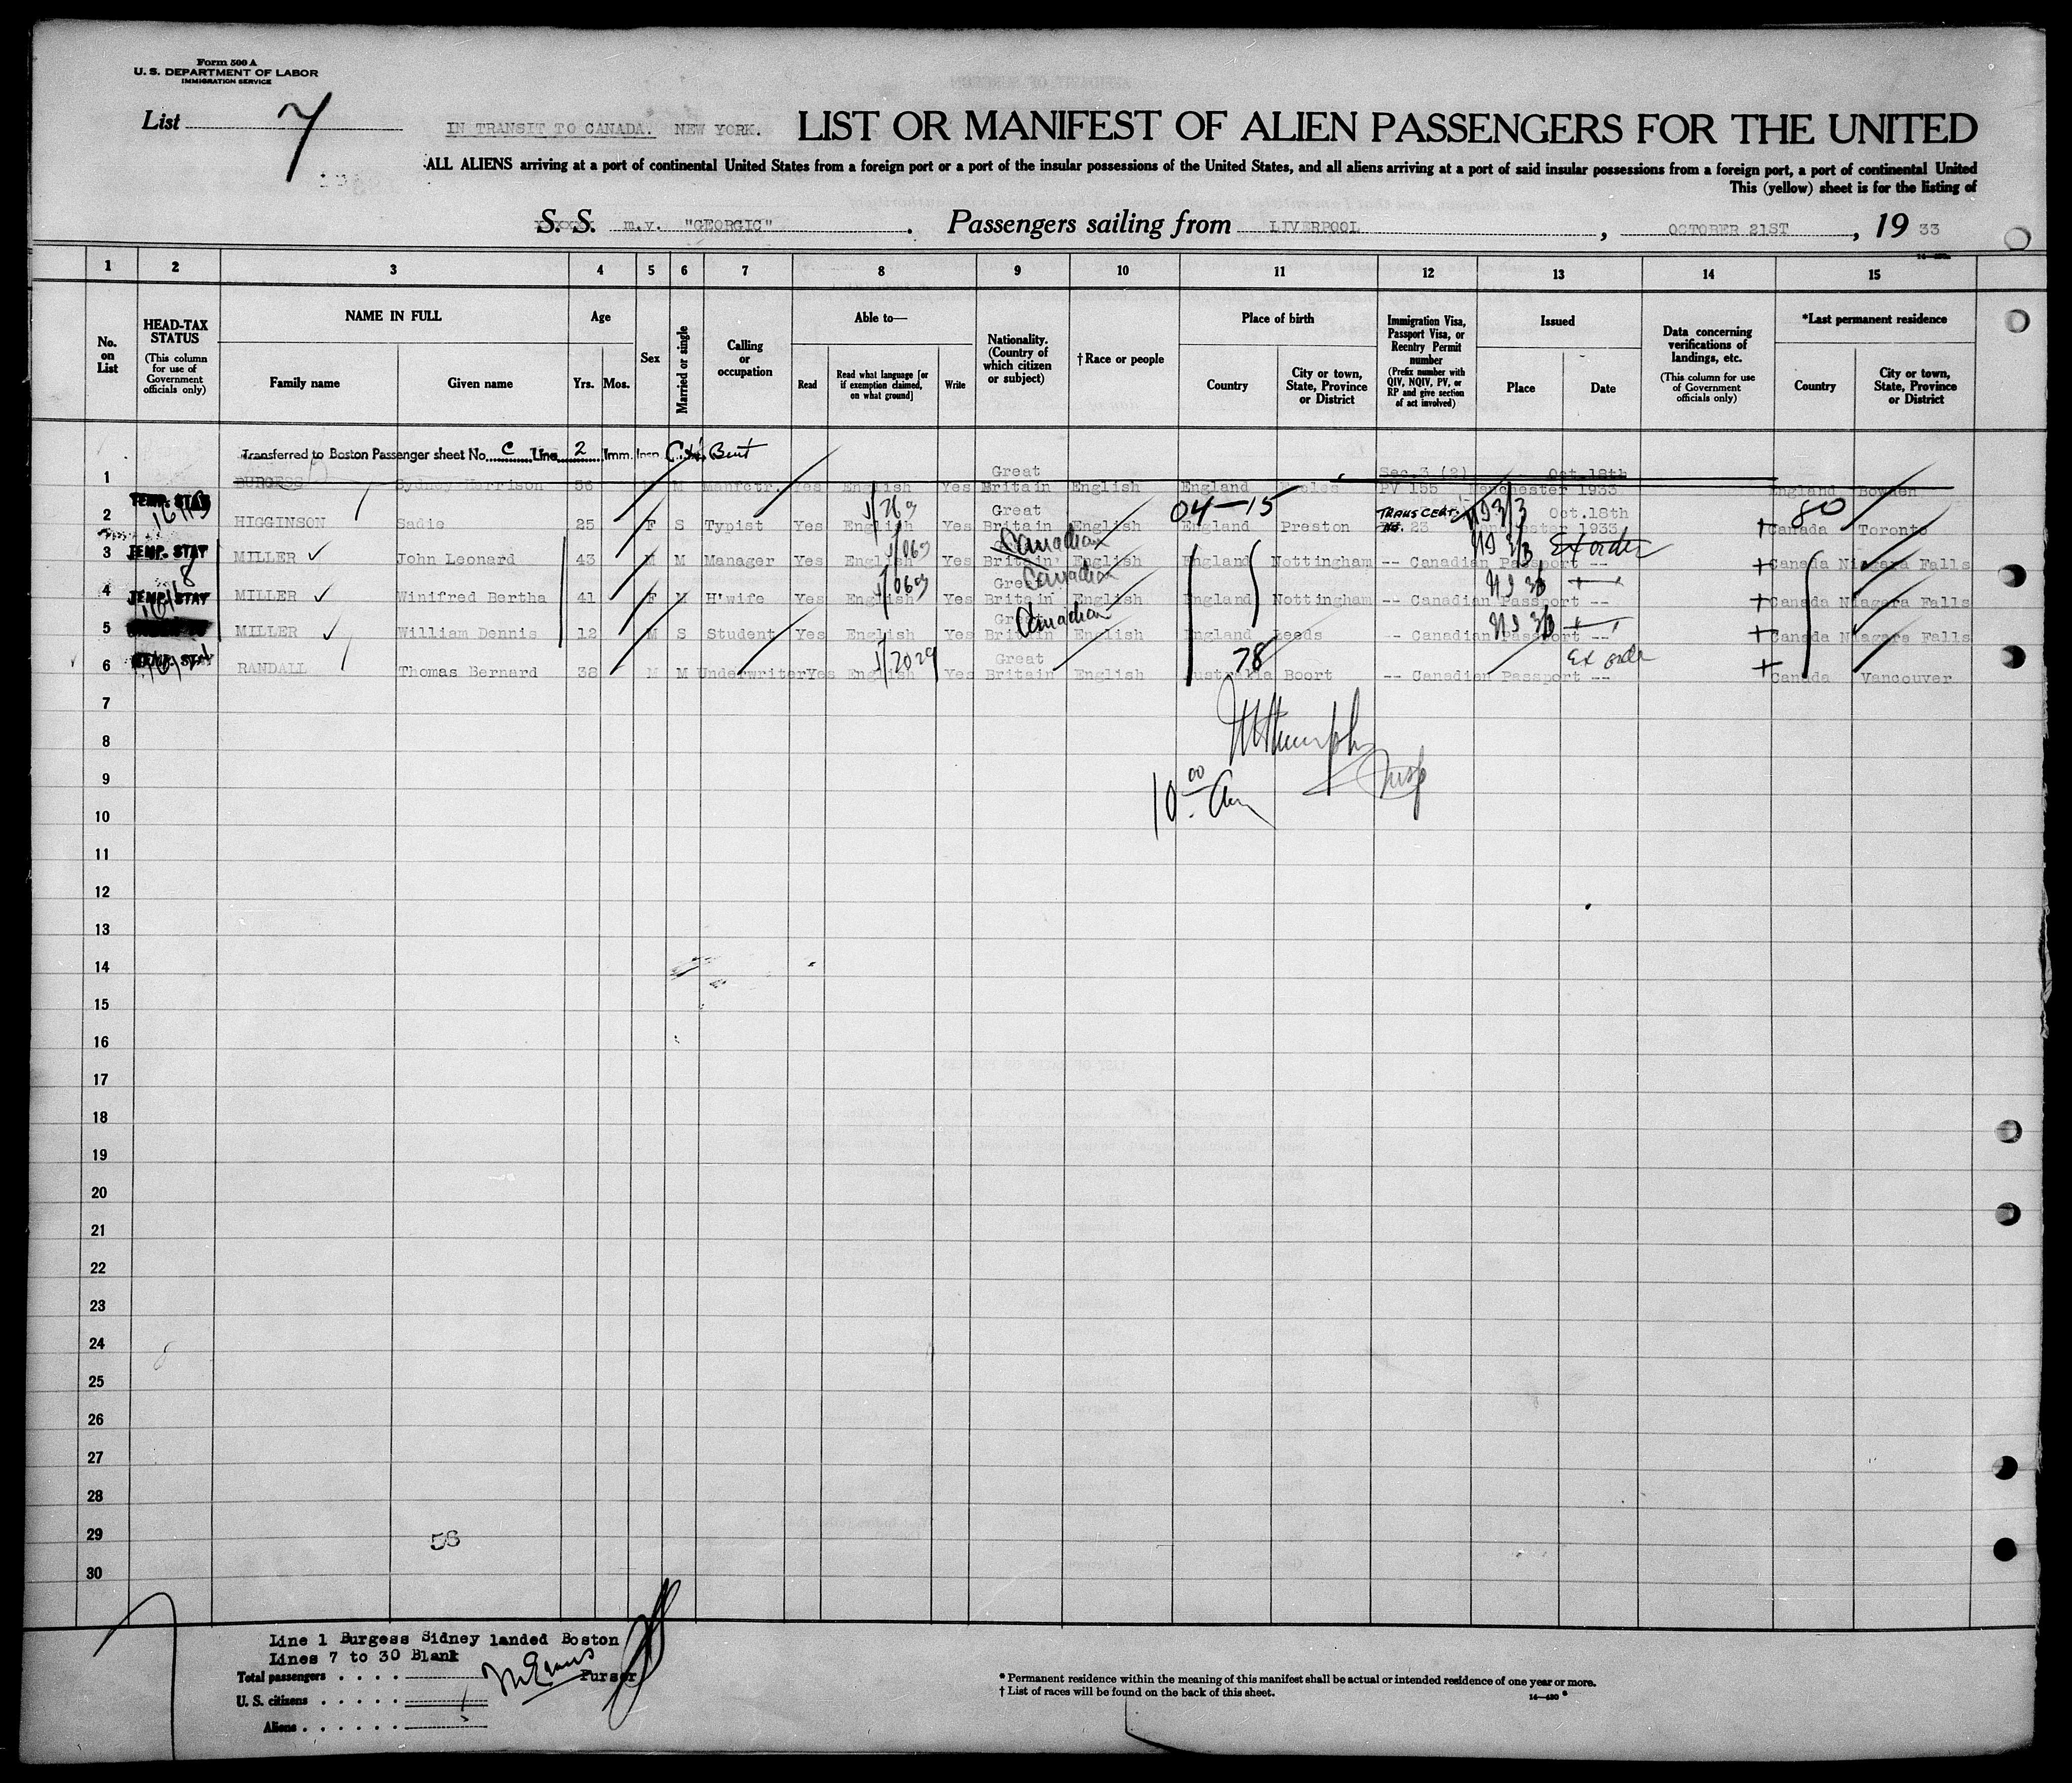 Form 500 A
U. S. DEPARTMENT OF LABOR
IMMIGRATION SERVICE
List 7
IN TRANSIT TO CANADA. NEW YORK. LIST OR MANIFEST OF ALIEN PASSENGERS FOR THE UNITED
ALL ALIENS arriving at a port of continental United States from a foreign port or a port of the insular possessions of the United States, and all aliens arriving at a port of said insular possessions from a foreign port, a port of continental United
This (yellow) sheet is for the listing of
S. S. m.v. "GEORGIC". Passengers sailing from LIVERPOOL, OCTOBER 21ST, 19 33
1 2 3 4 5 6 7 8 9 10 11 12 13 14 15
No. on List
HEAD-TAX STATUS
(This column for use of Government officials only)
NAME IN FULL
Family name Given name
Age
Yrs. Mos.
Sex
Married or single
Calling or occupation
Able to—
Read
Read what language [or if exemption claimed, on what ground]
Write
Nationality. (Country of which citizen or subject)
†Race or people
Place of birth
Country
City or town, State, Province or District
Immigration Visa, Passport Visa, or Reentry Permit number
(Prefix number with QIV, NQIV, PV, or RP and give section of act involved)
Issued
Place Date
Data concerning verifications of landings, etc.
(This column for use of Government officials only)
*Last permanent residence
Country
City or town, State, Province or District
Transferred to Boston Passenger sheet No. C Line 2 Imm. Insp.
Great Sec.3 (2) Oct.18th
1 BURGESS Sydney Harrison 56 M M Manfctr. Yes English Yes Britain English England PV 155 Manchester 1933 England Bowden
TEMP. STAY Great 04-15 TRANS CERT. Oct.18th 80
2 HIGGINSON Sadie 25 F S Typist Yes English Yes Britain English England Preston No. 23 Manchester 1933 Canada Toronto
Canadian Ex order
3 TEMP. STAY MILLER John Leonard 43 M M Manager Yes English Yes Britain English England Nottingham -- Canadian Passport -- Canada Niagara Falls
Great Canadian
4 TEMP. STAY MILLER Winifred Bertha 41 F M H'wife Yes English Yes Britain English England Nottingham -- Canadian Passport -- Canada Niagara Falls
Great Canadian
5 MILLER William Dennis 12 M S Student Yes English Yes Britain English England Leeds -- Canadian Passport -- Canada Niagara Falls
TEMP. STAY Great 78 Ex order
6 RANDALL Thomas Bernard 38 M M Underwriter Yes English Yes Britain English Australia Boort -- Canadian Passport -- Canada Vancouver
7
8
9
10 00 am
10
11
12
13
14
15
16
17
18
19
20
21
22
23
24
25
26
27
28
29
56
30
Line 1 Burgess Sidney landed Boston
Lines 7 to 30 Blank
Total passengers . . . . Purser
U. S. citizens . . . . .
Aliens . . . . . .
* Permanent residence within the meaning of this manifest shall be actual or intended residence of one year or more.
† List of races will be found on the back of this sheet.
14—430